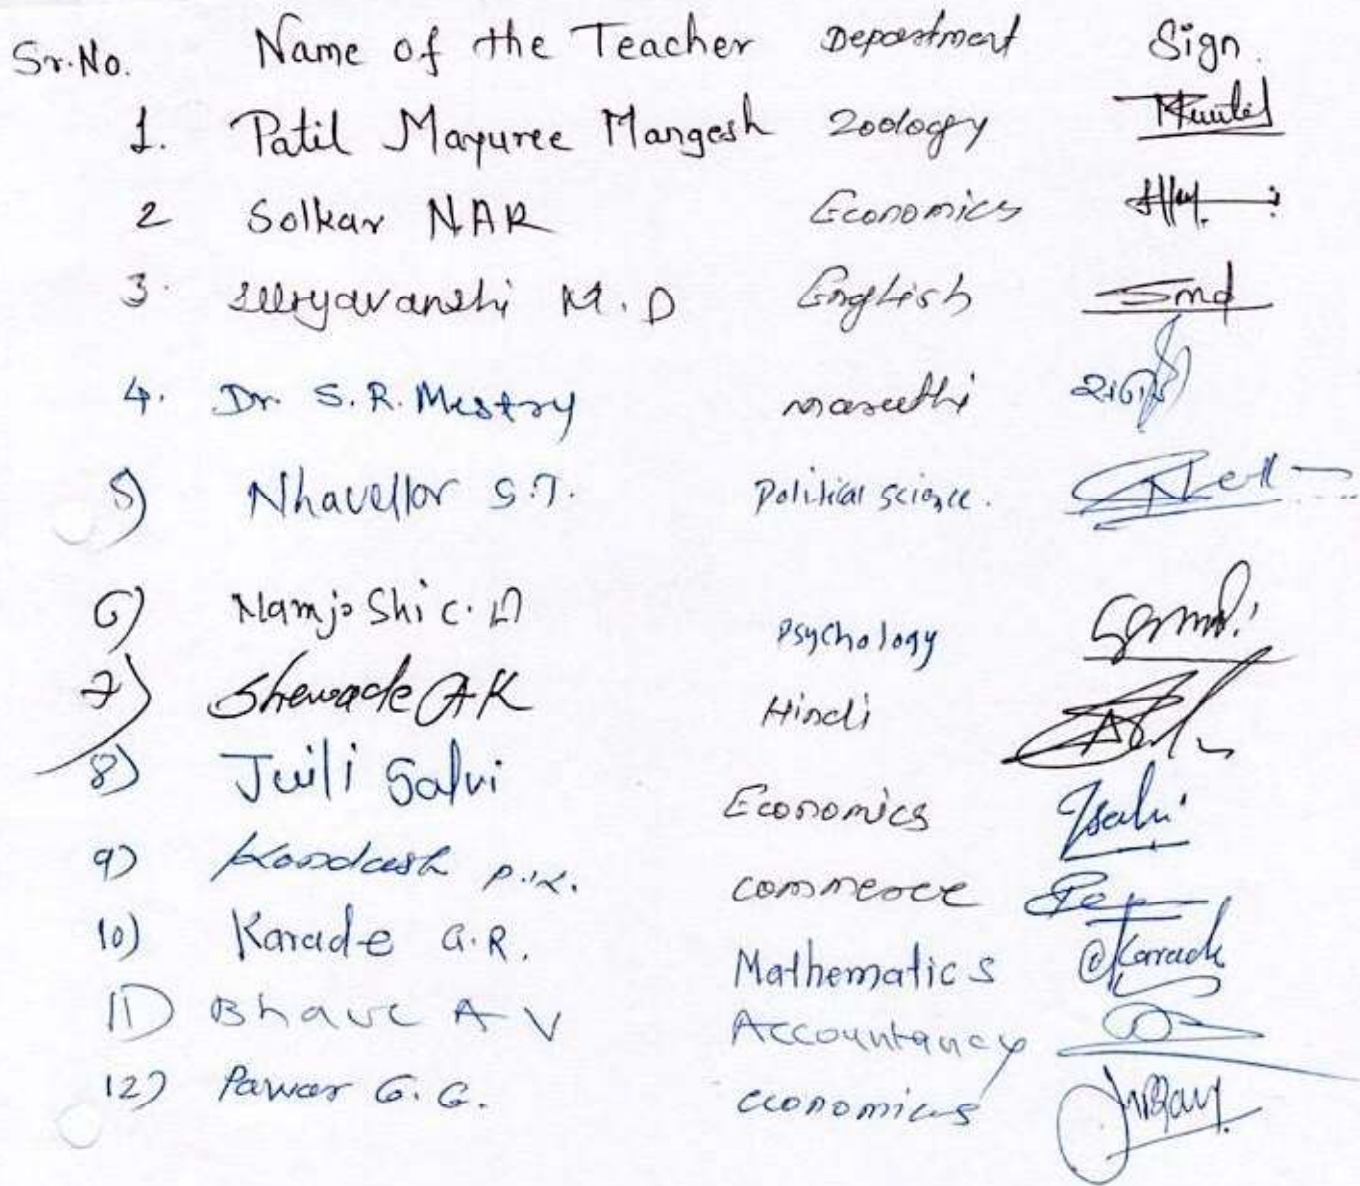 Sr.No. Name of the Teacher Department Sign.
1. Patil Mayuree Mangesh Zoology
2 Solkar NAR Economics
3. Suryavanshi M.D English Smd
4. Dr. S.R. Mestry marathi
5) Nhavelkar S.T. Political science.
6) Namjoshi C.D Psychology
7) Shewade A K Hindi
8) Juili Salvi Economics Jsalvi
9) P.K. commerce
10) Karade G.R. Mathematics Karade
11) Bhave A V Accountancy
12) Pawar G.G. economics